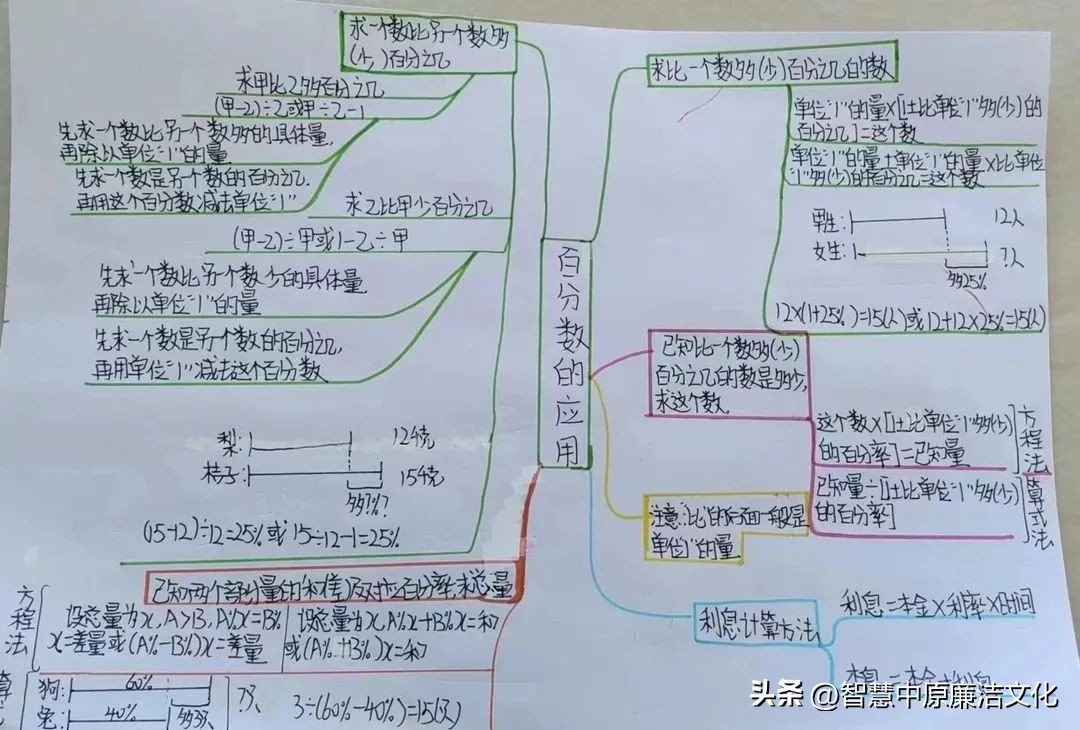 百分数的应用
求一个数比另一个数多
(少)百分之几
求甲比乙多百分之几
(甲-乙)÷乙或甲÷乙-1
先求一个数比另一个数多的具体量,
再除以单位“1”的量
先求一个数是另一个数的百分之几,
再用这个百分数减去单位“1”
求乙比甲少百分之几
(甲-乙)÷甲或1-乙÷甲
先求一个数比另一个数少的具体量
再除以单位“1”的量
先求一个数是另一个数的百分之几,
再用单位“1”减去这个百分数
梨: 12千克
桔子: 15千克
多?%?
(15-12)÷12=25% 或 15÷12-1=25%
求比一个数多(少)百分之几的数
单位“1”的量×[1±比单位“1”多(少)的
百分之几]=这个数
单位“1”的量±单位“1”的量×比单位
“1”多(少)的百分之几=这个数
男生: 12人
女生: ?人
多25%
12×(1+25%)=15(人)或12+12×25%=15(人)
已知比一个数多(少)
百分之几的数是多少,
求这个数.
这个数×[1±比单位“1”多(少)
的百分率]=已知量
方程法
已知量÷[1±比单位“1”多(少)
的百分率]
算式法
注意:“比”的后面一般是
单位“1”的量
利息计算方法
利息=本金×利率×时间
本息=本金+利息
已知两个部分量的和(差)及对应百分率,求总量
方程法
设总量为x,A>B,A%x-B%
x=差量或(A%-B%)x=差量
设总量为x,A%x+B%x=和
或(A%+B%)x=和
狗: 60%
兔: 40% 多3只
?只
3÷(60%-40%)=15(只)
头条 @智慧中原廉洁文化